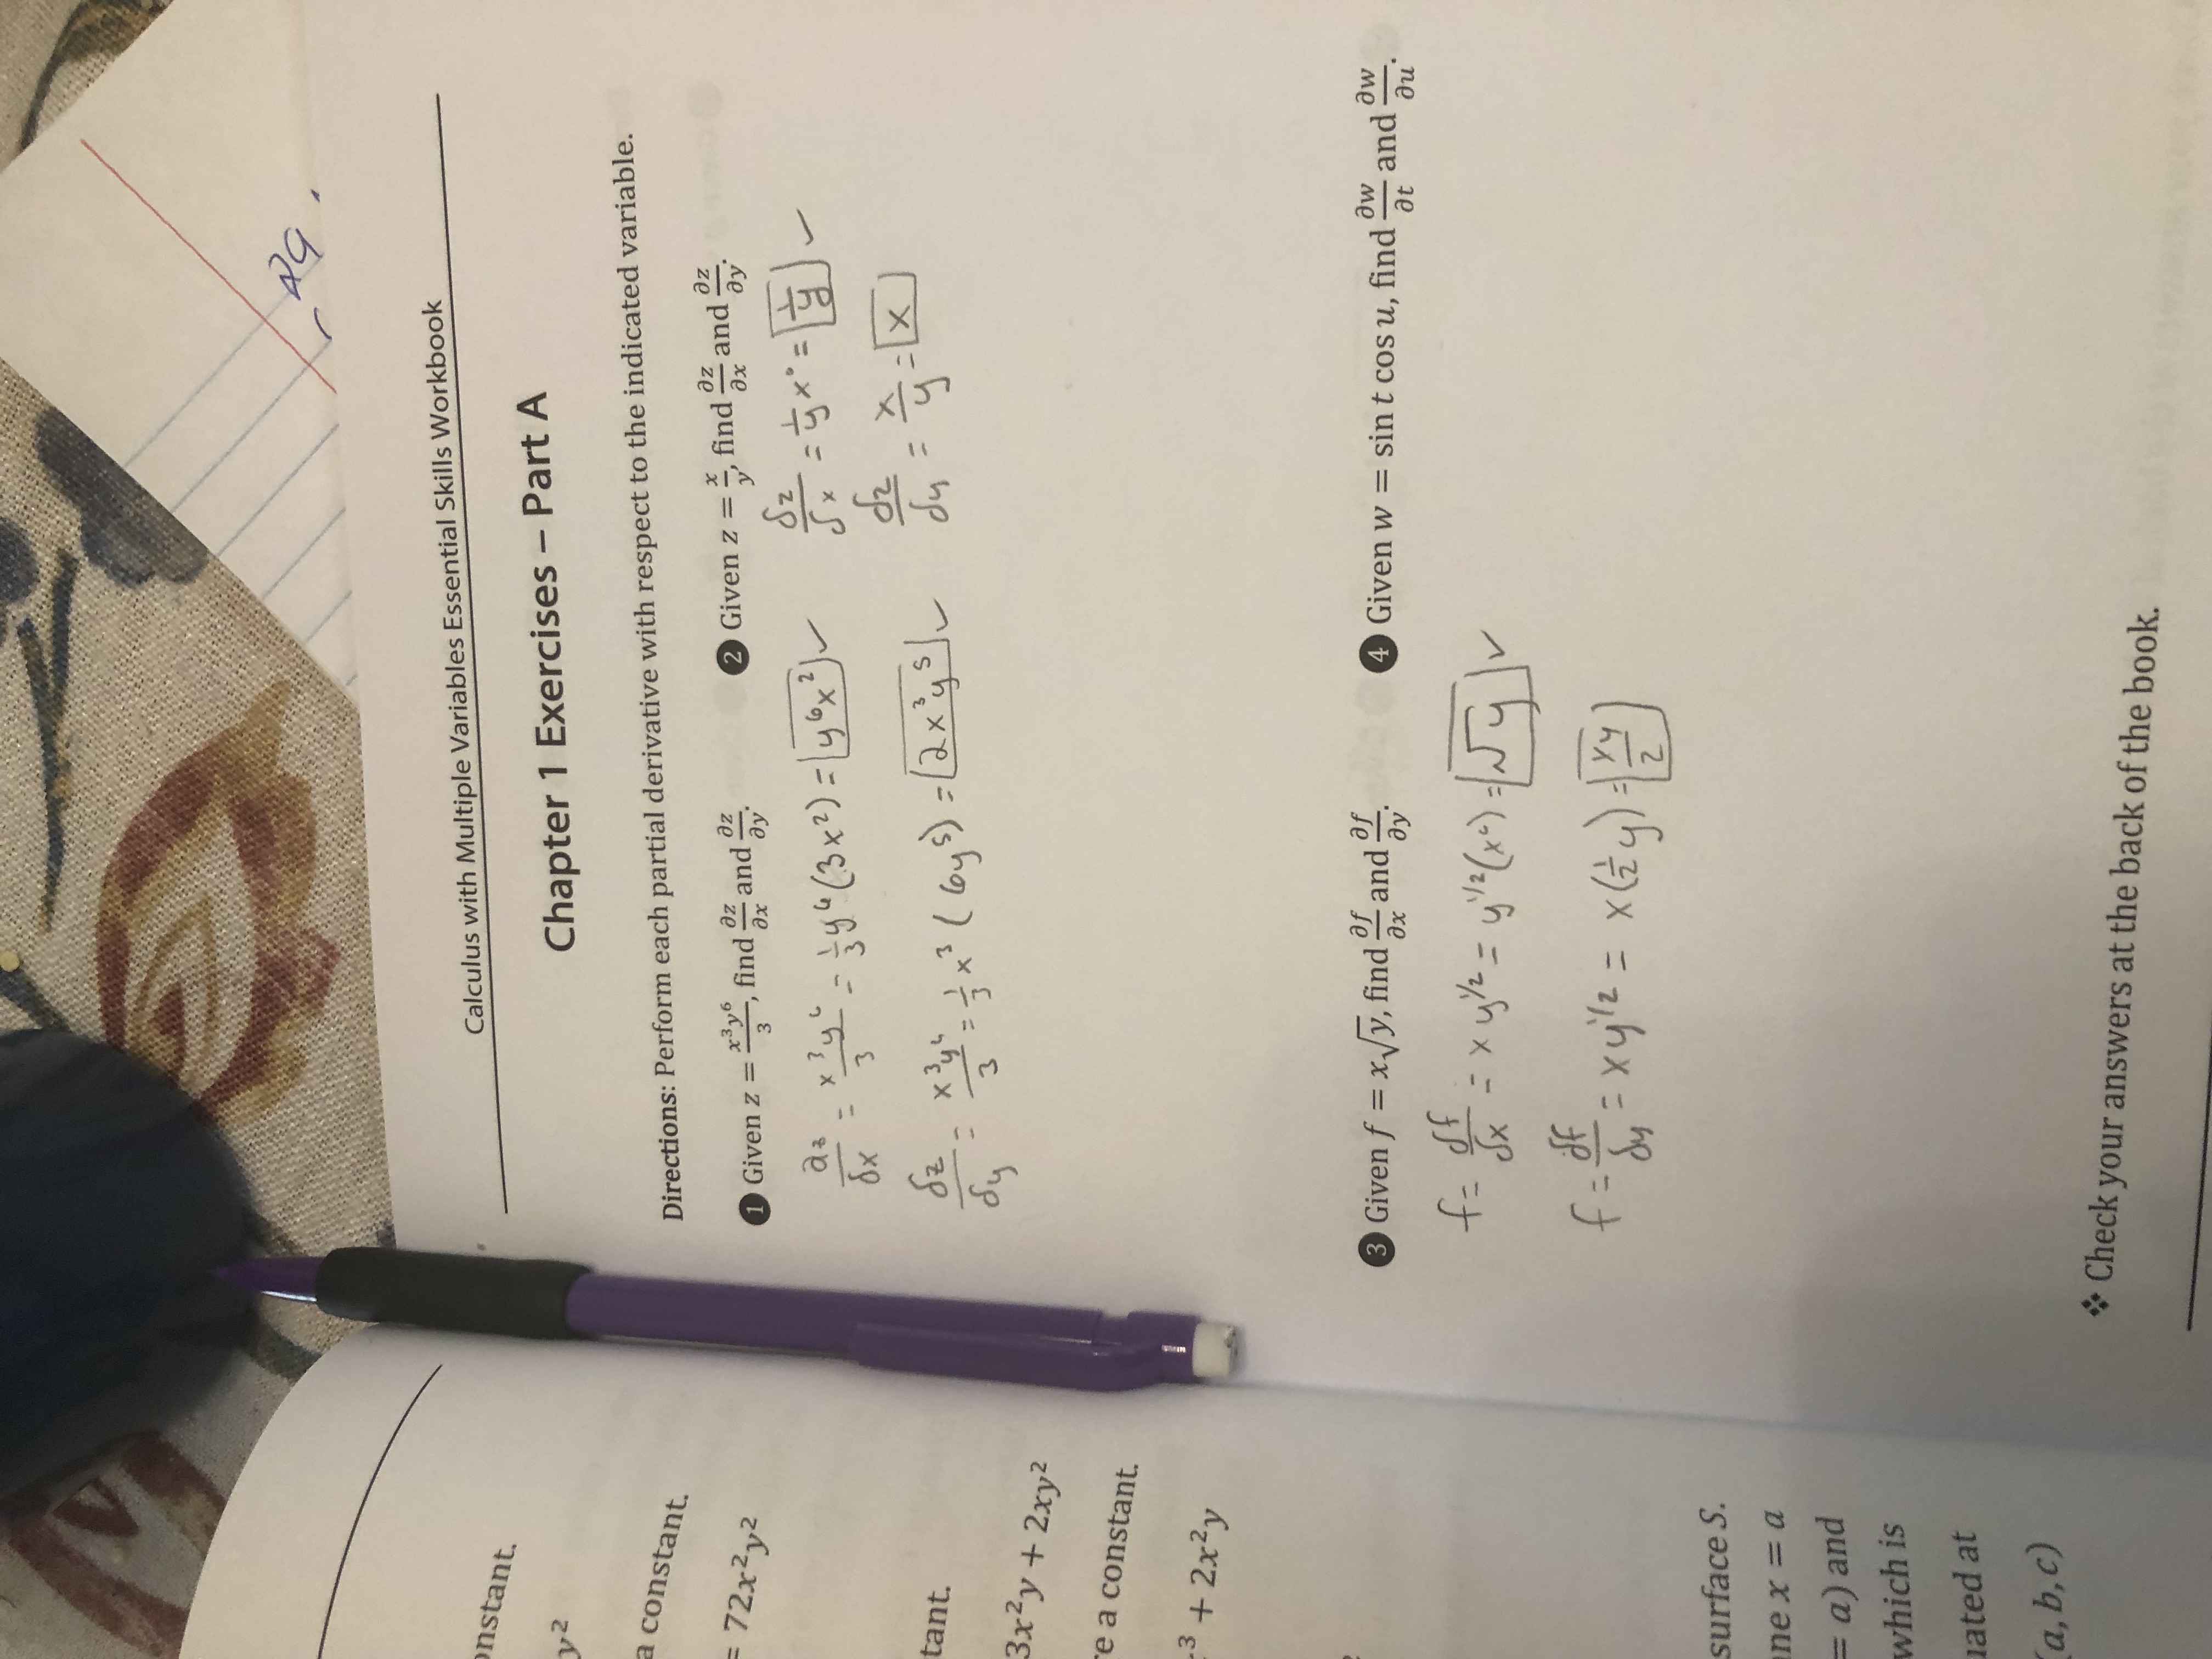 29.
onstant.
y²
a constant.
= 72x²y²
tant.
3x²y + 2xy²
re a constant.
³ + 2x²y
surface S.
ne x = a
= a) and
which is
uated at
(a, b, c)
Calculus with Multiple Variables Essential Skills Workbook
Chapter 1 Exercises – Part A
Directions: Perform each partial derivative with respect to the indicated variable.
❶ Given z = x³y⁶/3, find ∂z/∂x and ∂z/∂y.
∂z/δx = x³y⁶/3 = 1/3 y⁶(3x²) = y⁶x² ✓
δz/δy = x³y⁶/3 = 1/3 x³ (6y⁵) = 2x³y⁵ ✓
❷ Given z = x/y, find ∂z/∂x and ∂z/∂y.
δz/δx = 1/y x⁰ = 1/y ✓
δz/δy = x/y = x
❸ Given f = x√y, find ∂f/∂x and ∂f/∂y.
f = δf/δx = x y^1/2 = y^1/2(x⁰) = √y ✓
f = δf/δy = xy^1/2 = x(1/2 y) = xy/2
❹ Given w = sin t cos u, find ∂w/∂t and ∂w/∂u.
❖ Check your answers at the back of the book.